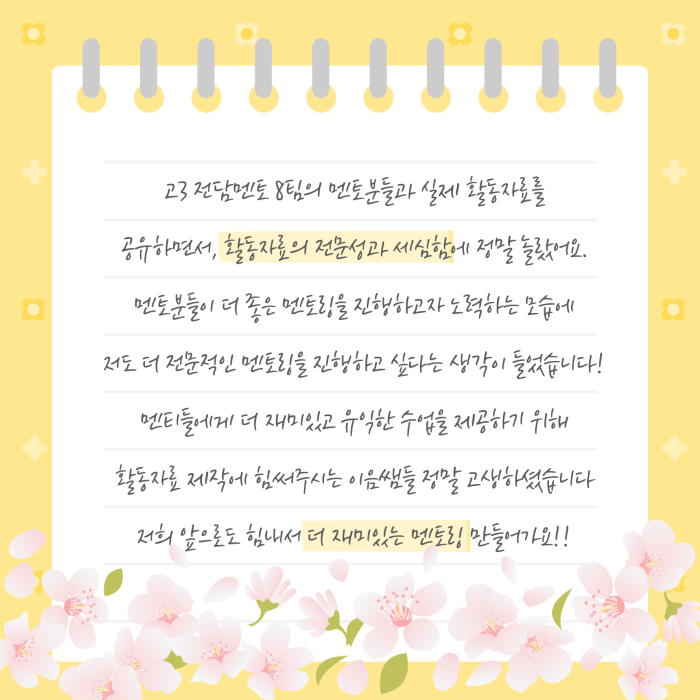 고3 전담멘토 8팀의 멘토분들과 실제 활동자료를
공유하면서, 활동자료의 전문성과 세심함에 정말 놀랐어요.
멘토분들이 더 좋은 멘토링을 진행하고자 노력하는 모습에
저도 더 전문적인 멘토링을 진행하고 싶다는 생각이 들었습니다!
멘티들에게 더 재미있고 유익한 수업을 제공하기 위해
활동자료 제작에 힘써주시는 이음쌤들 정말 고생하셨습니다
저희 앞으로도 힘내서 더 재미있는 멘토링 만들어가요!!